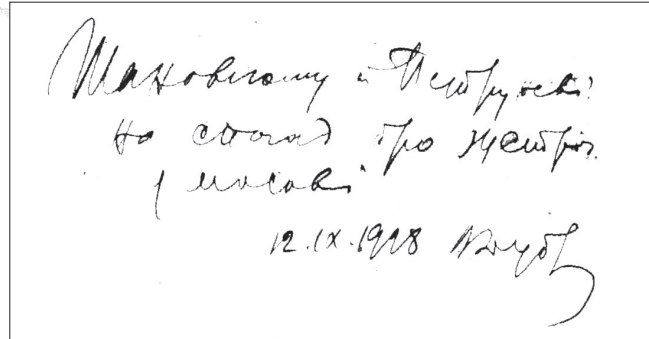 Шановному й Петрусеві
на спогад про зустріч
у Москві
12.IX.1928